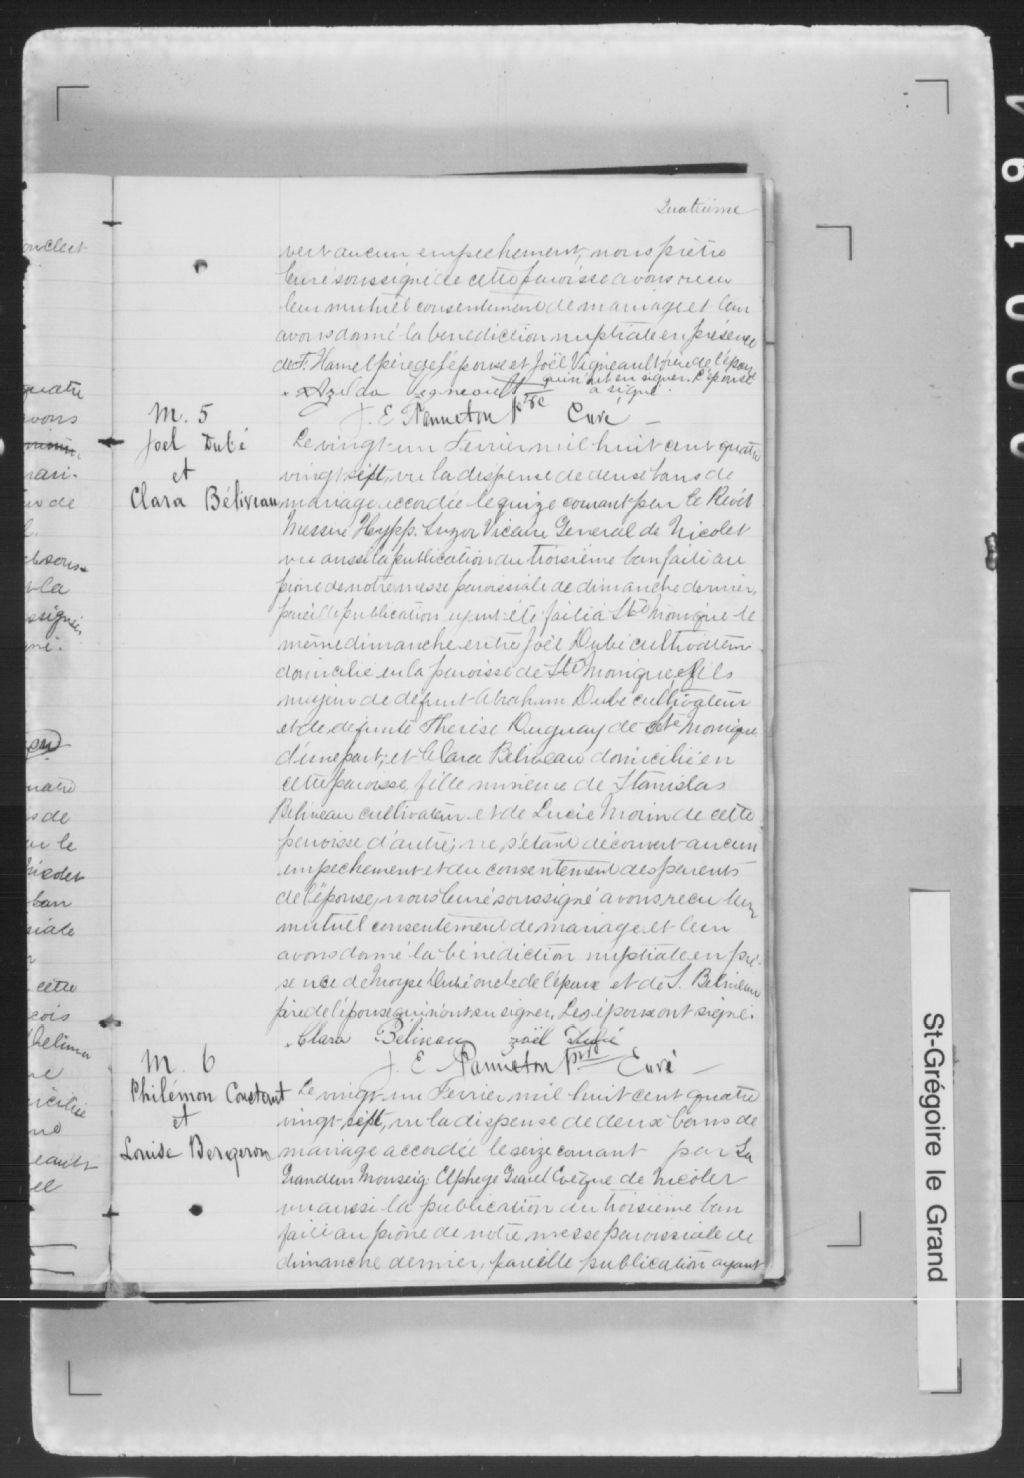 Quatrième
vert aucun empechement, nous prêtre
Curé soussigné de cette paroisse avons recu
leur mutuel consentement de mariage et leur
avons donné la bénédiction nuptiale en présence
de F. Hamel père de l'épouse et Joël Vigneault frère de l'époux
qui n'ont su signer. L'épouse
a signé.
Azilda
J. E. Panneton Ptre Curé
M. 5
Joel Dubé
et
Clara Béliveau
Le vingt-un Fevrier mil huit cent quatre
vingt-sept, vu la dispense de deux bans de
mariage accordée le quinze courant par le Revd
Messire Hypp. Suzor Vicaire General de Nicolet
vu aussi la publication du troisième ban faite au
prône de notre messe paroissiale de dimanche dernier,
pareille publication ayant été faite à Ste Monique le
même dimanche entre Joël Dubé cultivateur
domicilié en la paroisse de Ste Monique fils
majeur de défunt Abraham Dubé cultivateur
et de défunte Therèse Duguay de Ste Monique
d'une part; et Clara Béliveau domiciliée en
cette paroisse, fille mineure de Stanislas
Béliveau cultivateur et de Lucie Morin de cette
paroisse d'autre; ne s'étant découvert aucun
empechement et du consentement des parents
de l'épouse, nous Curé soussigné avons recu leur
mutuel consentement de mariage et leur
avons donné la bénédiction nuptiale en pré-
sence de Moyse Dubé oncle de l'époux et de S. Béliveau
père de l'épouse qui n'ont su signer. Les époux ont signé.
Clara Béliveau Joël Dubé
J. E. Panneton Ptre Curé
M. 6
Philémon Constant
et
Louise Bergeron
Le vingt-un Fevrier mil huit cent quatre
vingt-sept, vu la dispense de deux bans de
mariage accordée le seize courant par Sa
Grandeur Monseig. Elphege Gravel Evêque de Nicolet
vu aussi la publication du troisième ban
faite au prône de notre messe paroissiale de
dimanche dernier, pareille publication ayant
St-Grégoire le Grand